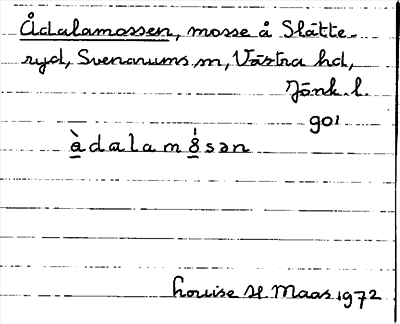 Ådalamossen, mosse å Slätte-
ryd, Svenarums sn, Västra hd,
Jönk. l.
901
àdalamósən
Louise H Maas 1972